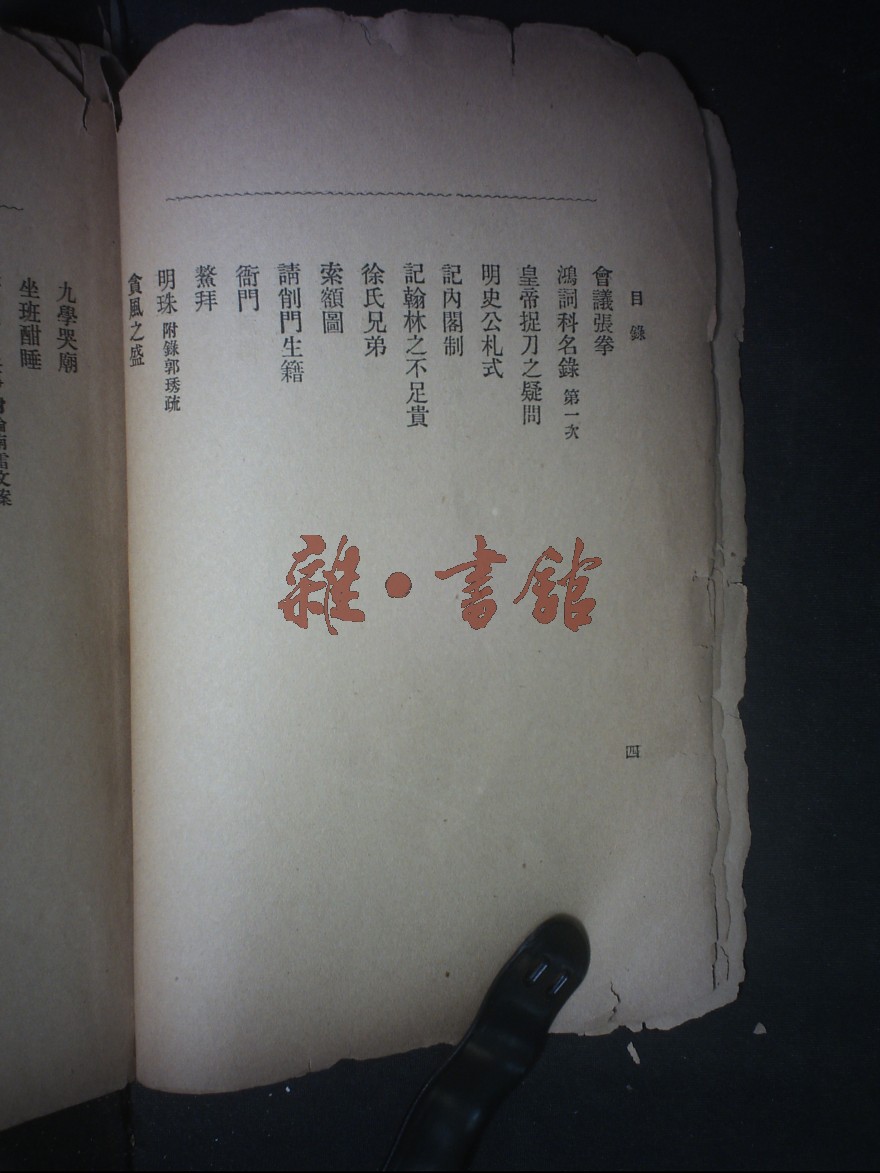 目錄
會議張拳
鴻詞科名錄 第一次
皇帝捉刀之疑問
明史公札式
記內閣制
記翰林之不足貴
徐氏兄弟
索額圖
請削門生籍
衙門
鰲拜
明珠 附錄郭琇疏
貪風之盛
四
九學哭廟
坐班酣睡
雜·書館